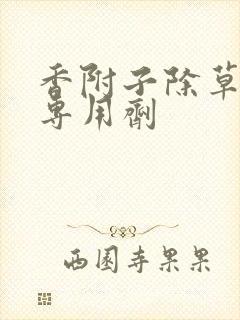 香附子除草
专用剂
西园寺果果